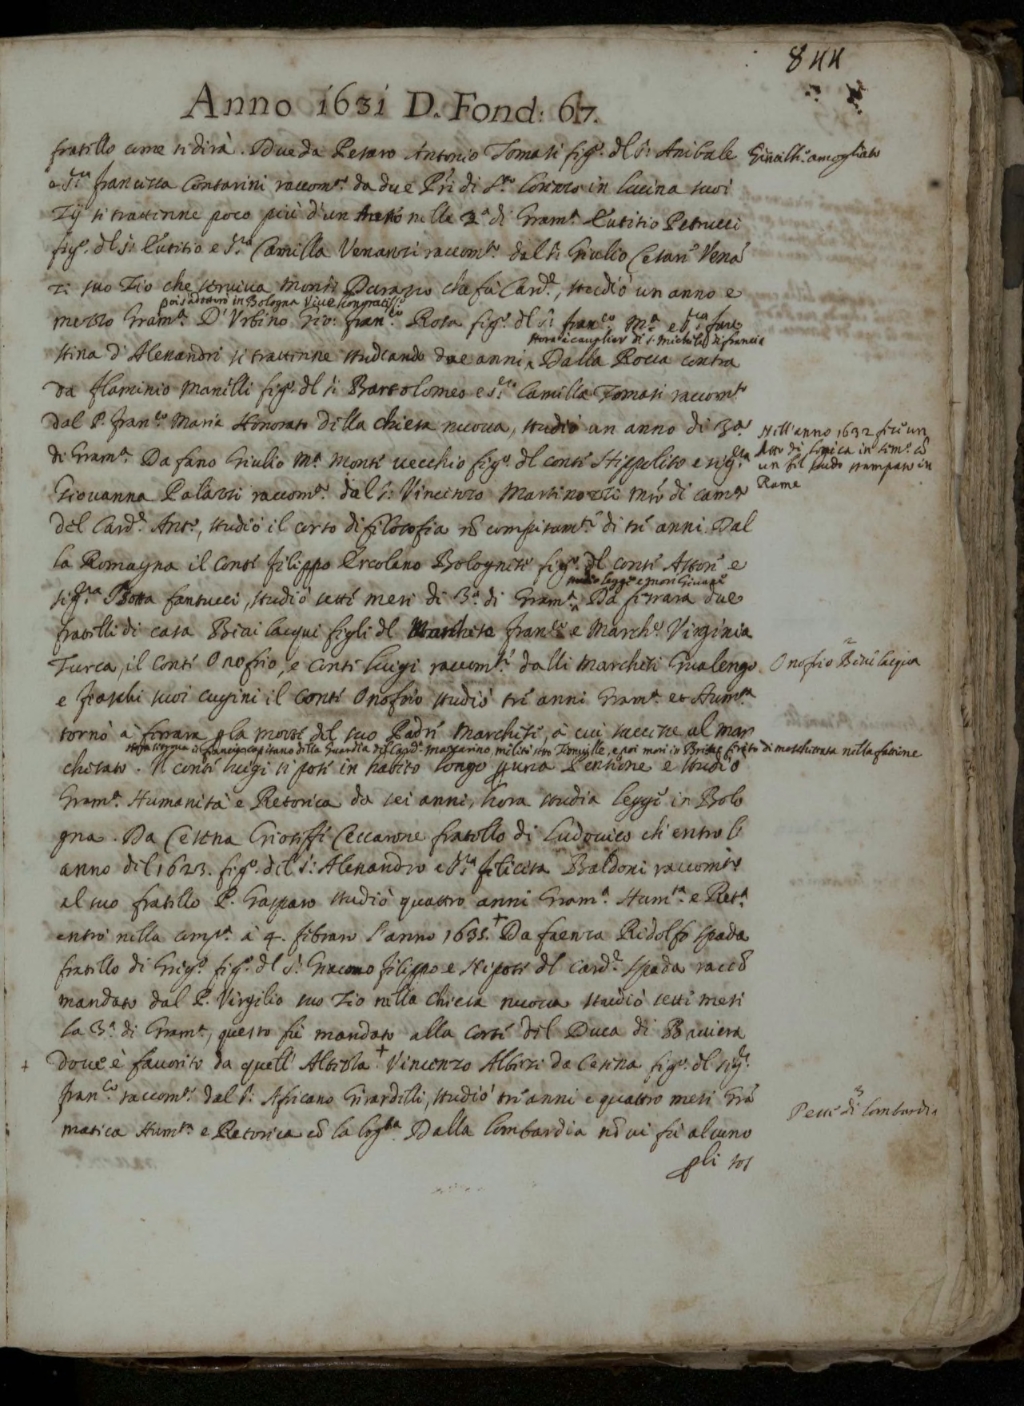 844
Anno 1631 D. Fond: 67.
fratello come si dirà. Due da Pesaro Antonio Tomasi fig.º del s.r Anibale
e s.ra Francesca Contarini raccom.to da due P.ri di S.to Lorenzo in lucina suoi
Zij si trattenne poco più d'un nella 2.a di Gram.a Eutitio Petrucci
fig.º del s.r Eutitio e s.ra Camilla Venanzi raccom.to dal s.r Giulio Cesare Vena
zi suo Zio che serviva Mons.r Durazzo che fù Card.e, studiò un anno e
poi in Bologna Vive
mezzo Gram.a D'Urbino Gio: fran.co Rosa fig.º del s.r fran.co M.a e s.ra faus
hora è cavalier di s. Michele di francia
tina d'Alexandri si trattenne studiando due anni. Dalla Rocca contra
da flaminio Manilli fig.º del s.r Bartolomeo e s.ra Camilla Tomasi raccom.to
dal P. fran.co Maria Honorato della chiesa nuova, studiò un anno di 3.a
di Gram.a Da fano Giulio M.a Monte vecchio fig.º del conte Hippolito e sig.ra
Giovanna Palazzi raccom.to dal s.r Vincenzo Martinozzi m.ro di cam.a
del Card.l Ant.º, studiò il corso di filosofia nō compitam.te di tre anni. Dal
la Romagna il Conte filippo Ercolano Bolognesi fig.º del conte Astore e
studiò legge e morì Giovane
sig.ra Botta fantucci, studiò sette mesi di 3.a di Gram.a Da ferrara due
fratelli di casa Bevilacqui figli del Marchese fran.co e March.a Virginia
Turca, il Conte Onofrio, e Conte luigi raccom.ti dalli Marchesi Gualengo
e suoi cugini il Conte Onofrio studiò tre anni Gram.a et Hum.tà
tornò a ferrara p la morte del suo Padre Marchese, à cui successe al mar
capitano della Guardia del Card.l Mazzarino militò e poi morì ferito di moschettata nella fatione
chesato. Il conte luigi si pose in habito longo una Pensione e studiò
Gram.a Humanità e Retorica da sei anni, hora studia legge in Bolo
gna. Da Cesena Gioseffe Ceccarone fratello di Ludovico ch'entrò l'
anno del 1623. fig.º del s.r Alexandro e s.ra felicita Baldoni raccom.to
al suo fratello P. Gasparo studiò quattro anni Gram.a Hum.tà e Ret.a
entrò nella comp.a à 4. febraro l'anno 1635.+ Da faenza Ridolfo spada
fratello di Greg.º fig.º del s.r Giacomo filippo e Nipote del card.l spada racco
mandato dal P. Virgilio suo Zio nella chiesa nuova studiò sette mesi
la 3.a di Gram.a, questo fù mandato alla corte del Duca di Baviera
+ Dove è favorito da quell'Altezza + Vincenzo Albizi da Cesena fig.º del sig.r
fran.co raccom.to dal s.r Africano Girardelli, studiò tre anni e quattro mesi Gra
matica Hum.tà e Retorica cō la log.ca Dalla lombardia nō vi fù alcuno
Gli sos
Ginalli: amogliato
Nell'anno 1632 fece un
Atto di Logica in sem.º cō
un bel scudo stampato in
Roma
Onofrio Bevilaqua
Peste di lombardia